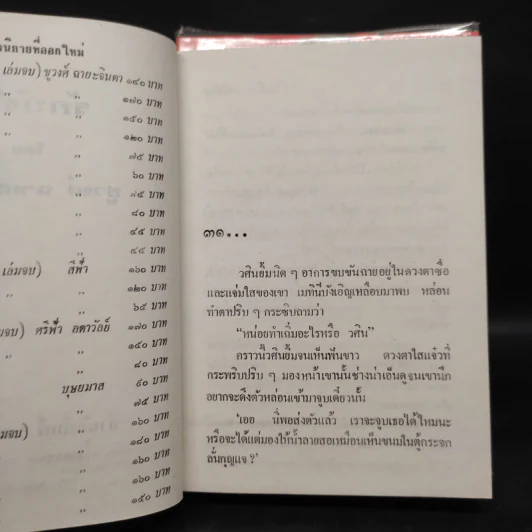 นิยายที่ออกใหม่
เล่มจบ) ชูวงศ์ ฉายะจินดา ๑๙๐ บาท
,, ,, ๑๗๐ บาท
,, ,, ๑๕๐ บาท
,, ,, ๑๒๐ บาท
,, ๗๕ บาท
,, ๖๐ บาท
,, ๗๕ บาท
,, ๘๐ บาท
,, ๔๕ บาท
,, ๔๔ บาท
เล่มจบ) สีฟ้า ๑๖๐ บาท
,, ,, ๑๒๐ บาท
,, ,, ๖๕ บาท
มจบ) ศรีฟ้า ลดาวัลย์ ๑๗๐ บาท
,, ๑๕๐ บาท
,, ๘๐ บาท
บุษยมาส ๙๐ บาท
,, ๗๕ บาท
,, ๑๖๐ บาท
จบ) ,, ๑๘๐ บาท
,, ๑๖๐ บาท
,, ๑๖๐ บาท
,, ๑๕๐ บาท
๓๑...
วศินยิ้มนิด ๆ อาการขบขันฉายอยู่ในดวงตาซื่อ
และแจ่มใสของเขา เมทินีบังเอิญเหลือบมาพบ หล่อน
ทำตาปริบ ๆ กระซิบถามว่า
“หน่อยทำเถิ่มอะไรหรือ วศิน”
คราวนี้วศินยิ้มจนเห็นฟันขาว ดวงตาใสแจ๋วที่
กระพริบปริบ ๆ มองหน้าเขานั้นช่างน่าเอ็นดูจนเขานึก
อยากจะดึงตัวหล่อนเข้ามาจูบเดี๋ยวนั้น
‘เออ นี่พอส่งตัวแล้ว เราจะจูบเธอได้ไหมนะ
หรือจะได้แต่มองให้น้ำลายสอเหมือนเห็นขนมในตู้กระจก
ลั่นกุญแจ ?’